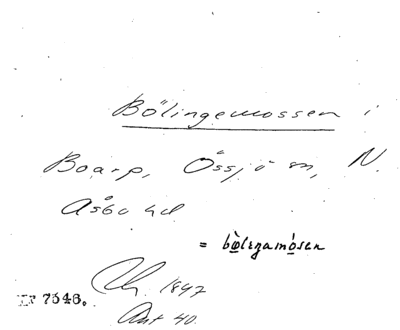 Bölingemossen i
Boarp, Össjö sn, N.
Åsbo hd
= bölingamosen
1847
7546.
Ant 40.